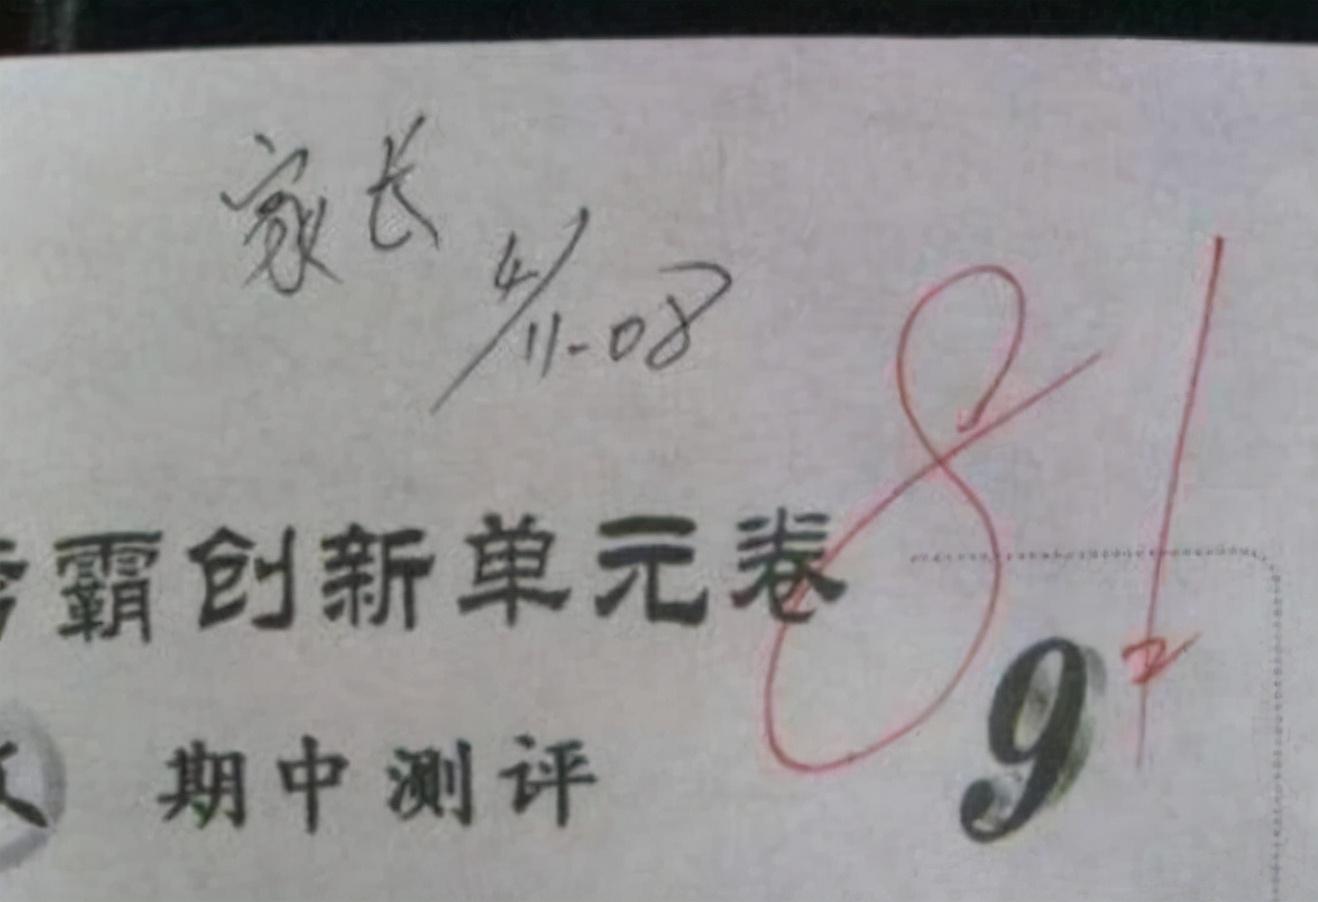 家长
4/11-08
81
霸创新单元卷
9
期中测评